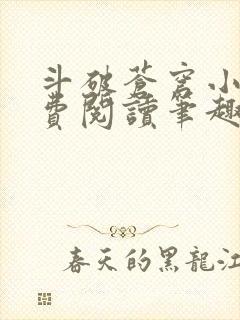 斗破蒼穹小
費閱讀筆趣
春天的黑龍江